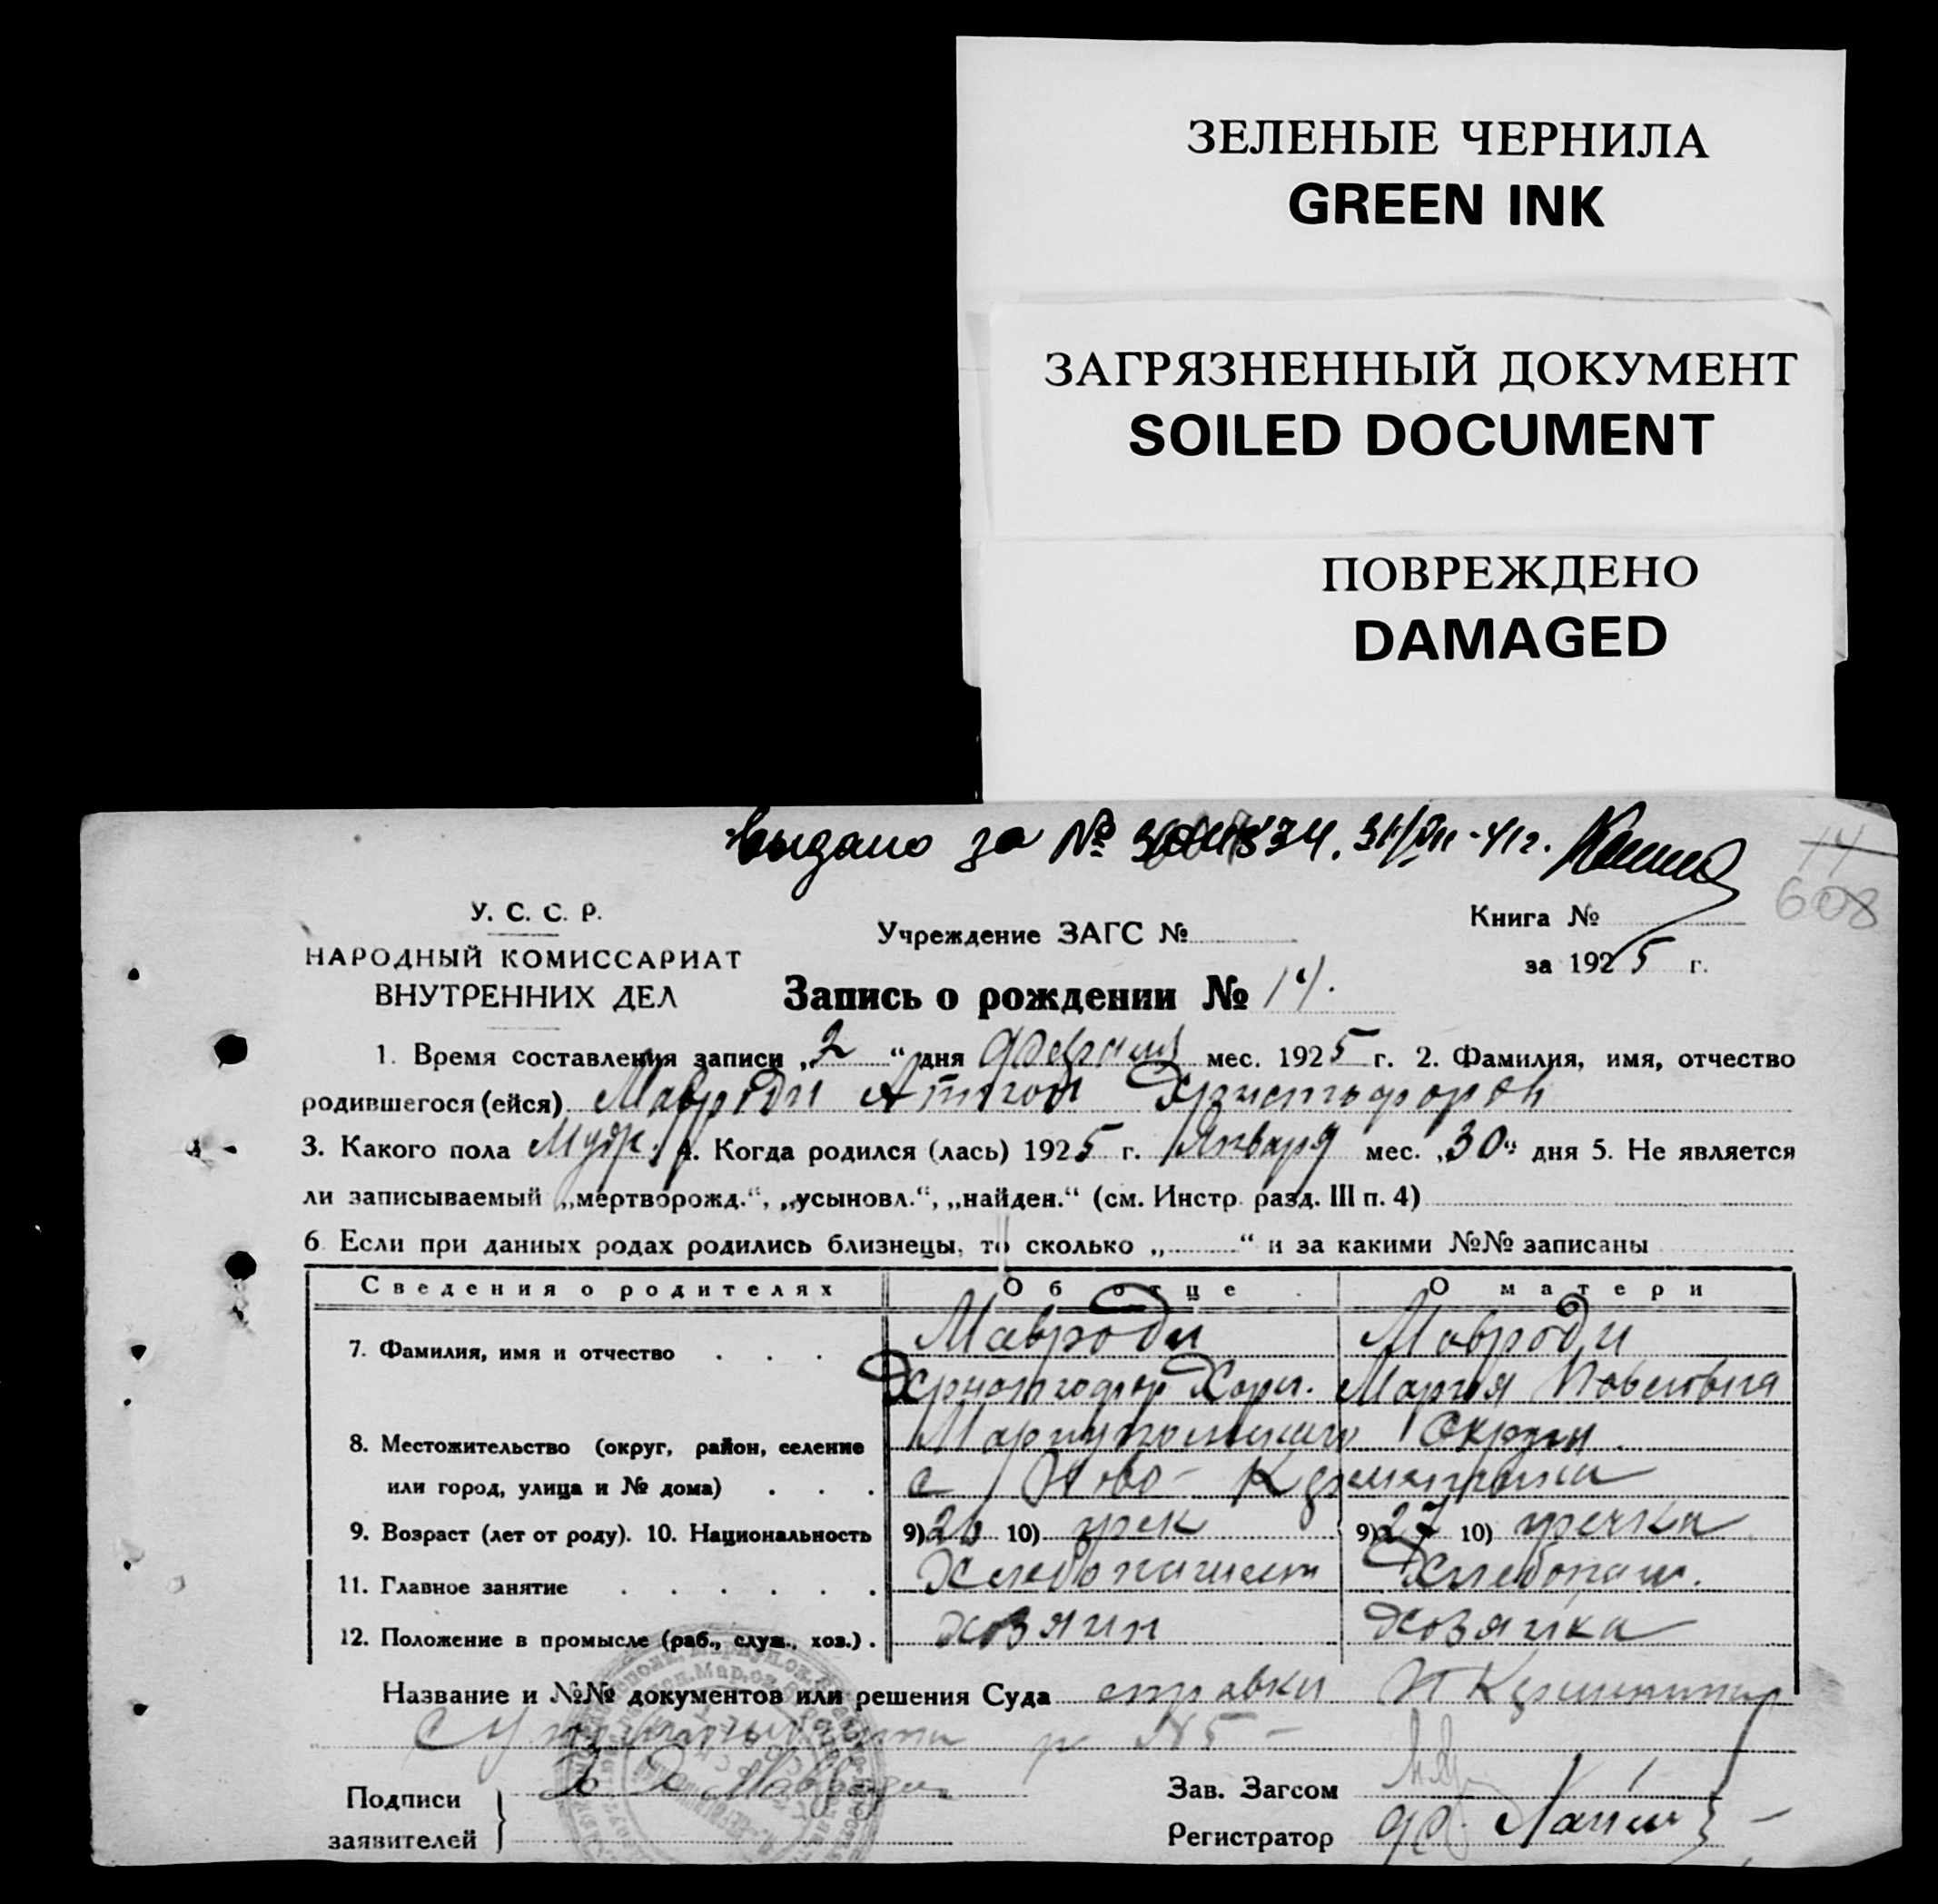 ЗЕЛЕНЫЕ ЧЕРНИЛА
GREEN INK
ЗАГРЯЗНЕННЫЙ ДОКУМЕНТ
SOILED DOCUMENT
ПОВРЕЖДЕНО
DAMAGED
Выдано за № 31/VII-41г.
14
608
У. С. С. Р.
НАРОДНЫЙ КОМИССАРИАТ
ВНУТРЕННИХ ДЕЛ
Учреждение ЗАГС №
Книга №
за 1925 г.
Запись о рождении № 14.
1. Время составления записи „2“ дня февраля мес. 1925 г. 2. Фамилия, имя, отчество
родившегося (ейся) Мавроди Христофоров
3. Какого пола Муж. 4. Когда родился (лась) 1925 г. Января мес. „30“ дня 5. Не является
ли записываемый „мертворожд.“, „усыновл.“, „найден.“ (см. Инстр. разд. III п. 4)
6. Если при данных родах родились близнецы, то сколько „ “ и за какими №№ записаны
Сведения о родителях Об отце О матери
7. Фамилия, имя и отчество . . . Мавроди Мавроди
Христофор Хар. Мария Павловна
8. Местожительство (округ, район, селение Мариупольского Округи
или город, улица и № дома) . . . с Ново-Кременчик
9. Возраст (лет от роду). 10. Национальность 9) 26 10) грек 9) 27 10) гречка
11. Главное занятие . . . . . . Хлебопашест Хлебопаш.
12. Положение в промысле (раб., служ., хоз.) . хозяин хозяйка
Название и №№ документов или решения Суда справки
№5
Подписи
заявителей
Х Мавроди
Зав. Загсом
Регистратор